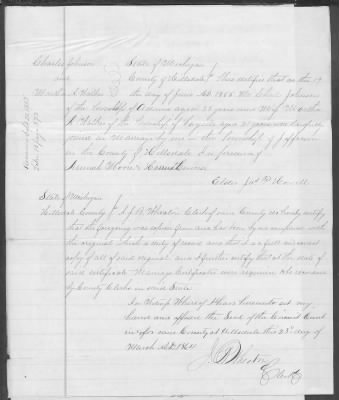 Charles Johnson
and
Martha A
State of Michigan
County of Hillsdale This certifies that on the 19
day of June AD 1855 Mr Charles Johnson
of the Township of aged 25 years and Miss Martha
A of the Township of aged 21 years were lawfully
joined in Marriage by me in the Township of Jefferson
in the County of Hillsdale In presence of
Moore &
Elder
State of Michigan
Hillsdale County Clerk of said County do hereby certify
that the foregoing was copied from and has been by me compared with
the original which is duly of record and that it is a full and correct
copy of all of said original and I further certify that at the date of
said certificate Marriage Certificates were required to be recorded
by County Clerks in said State
In Witness Whereof I have hereunto set my
hand and affixed the Seal of the Circuit Court
in & for said County at Hillsdale this 23d day of
March AD 1864
Clerk